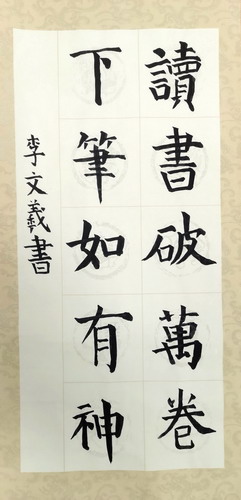 讀書破萬卷
下筆如有神
李文羲書